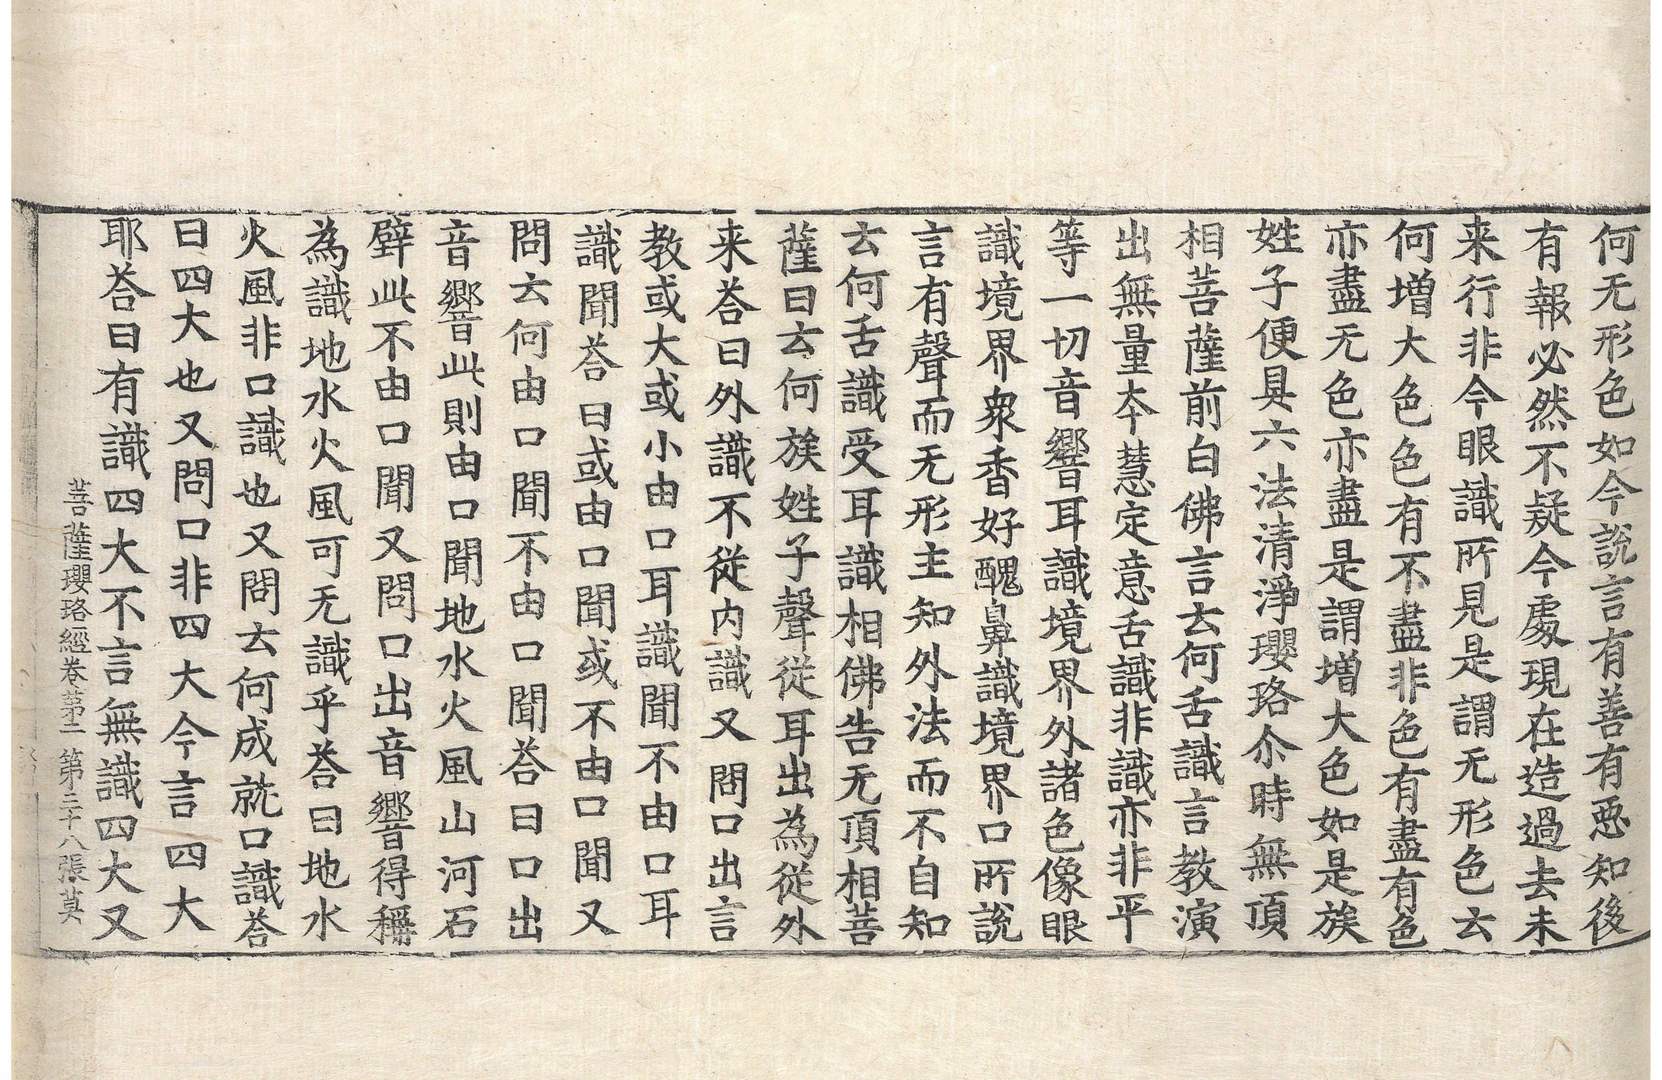 何无形色如今說言有善有惡知後
有報必然不疑今處現在造過去未
来行非今眼識所見是謂无形色云
何增大色色有不盡非色有盡有色
亦盡无色亦盡是謂增大色如是族
姓子便具六法清淨瓔珞尒時無頂
相菩薩前白佛言云何舌識言教演
出無量夲慧定意舌識非識亦非平
等一切音響耳識境界外諸色像眼
識境界衆香好醜鼻識境界口所說
言有聲而无形主知外法而不自知
云何舌識受耳識相佛告无頂相菩
薩曰云何族姓子聲從耳出為從外
来荅曰外識不從内識又問口出言
教或大或小由口耳識聞不由口耳
識聞荅曰或由口聞或不由口聞又
問云何由口聞不由口聞荅曰口出
音響此則由口聞地水火風山河石
壁此不由口聞又問口出音響得稱
為識地水火風可无識乎荅曰地水
火風非口識也又問云何成就口識荅
曰四大也又問口非四大今言四大
耶荅曰有識四大不言無識四大又
菩薩瓔珞經卷第二 第三十八張莫